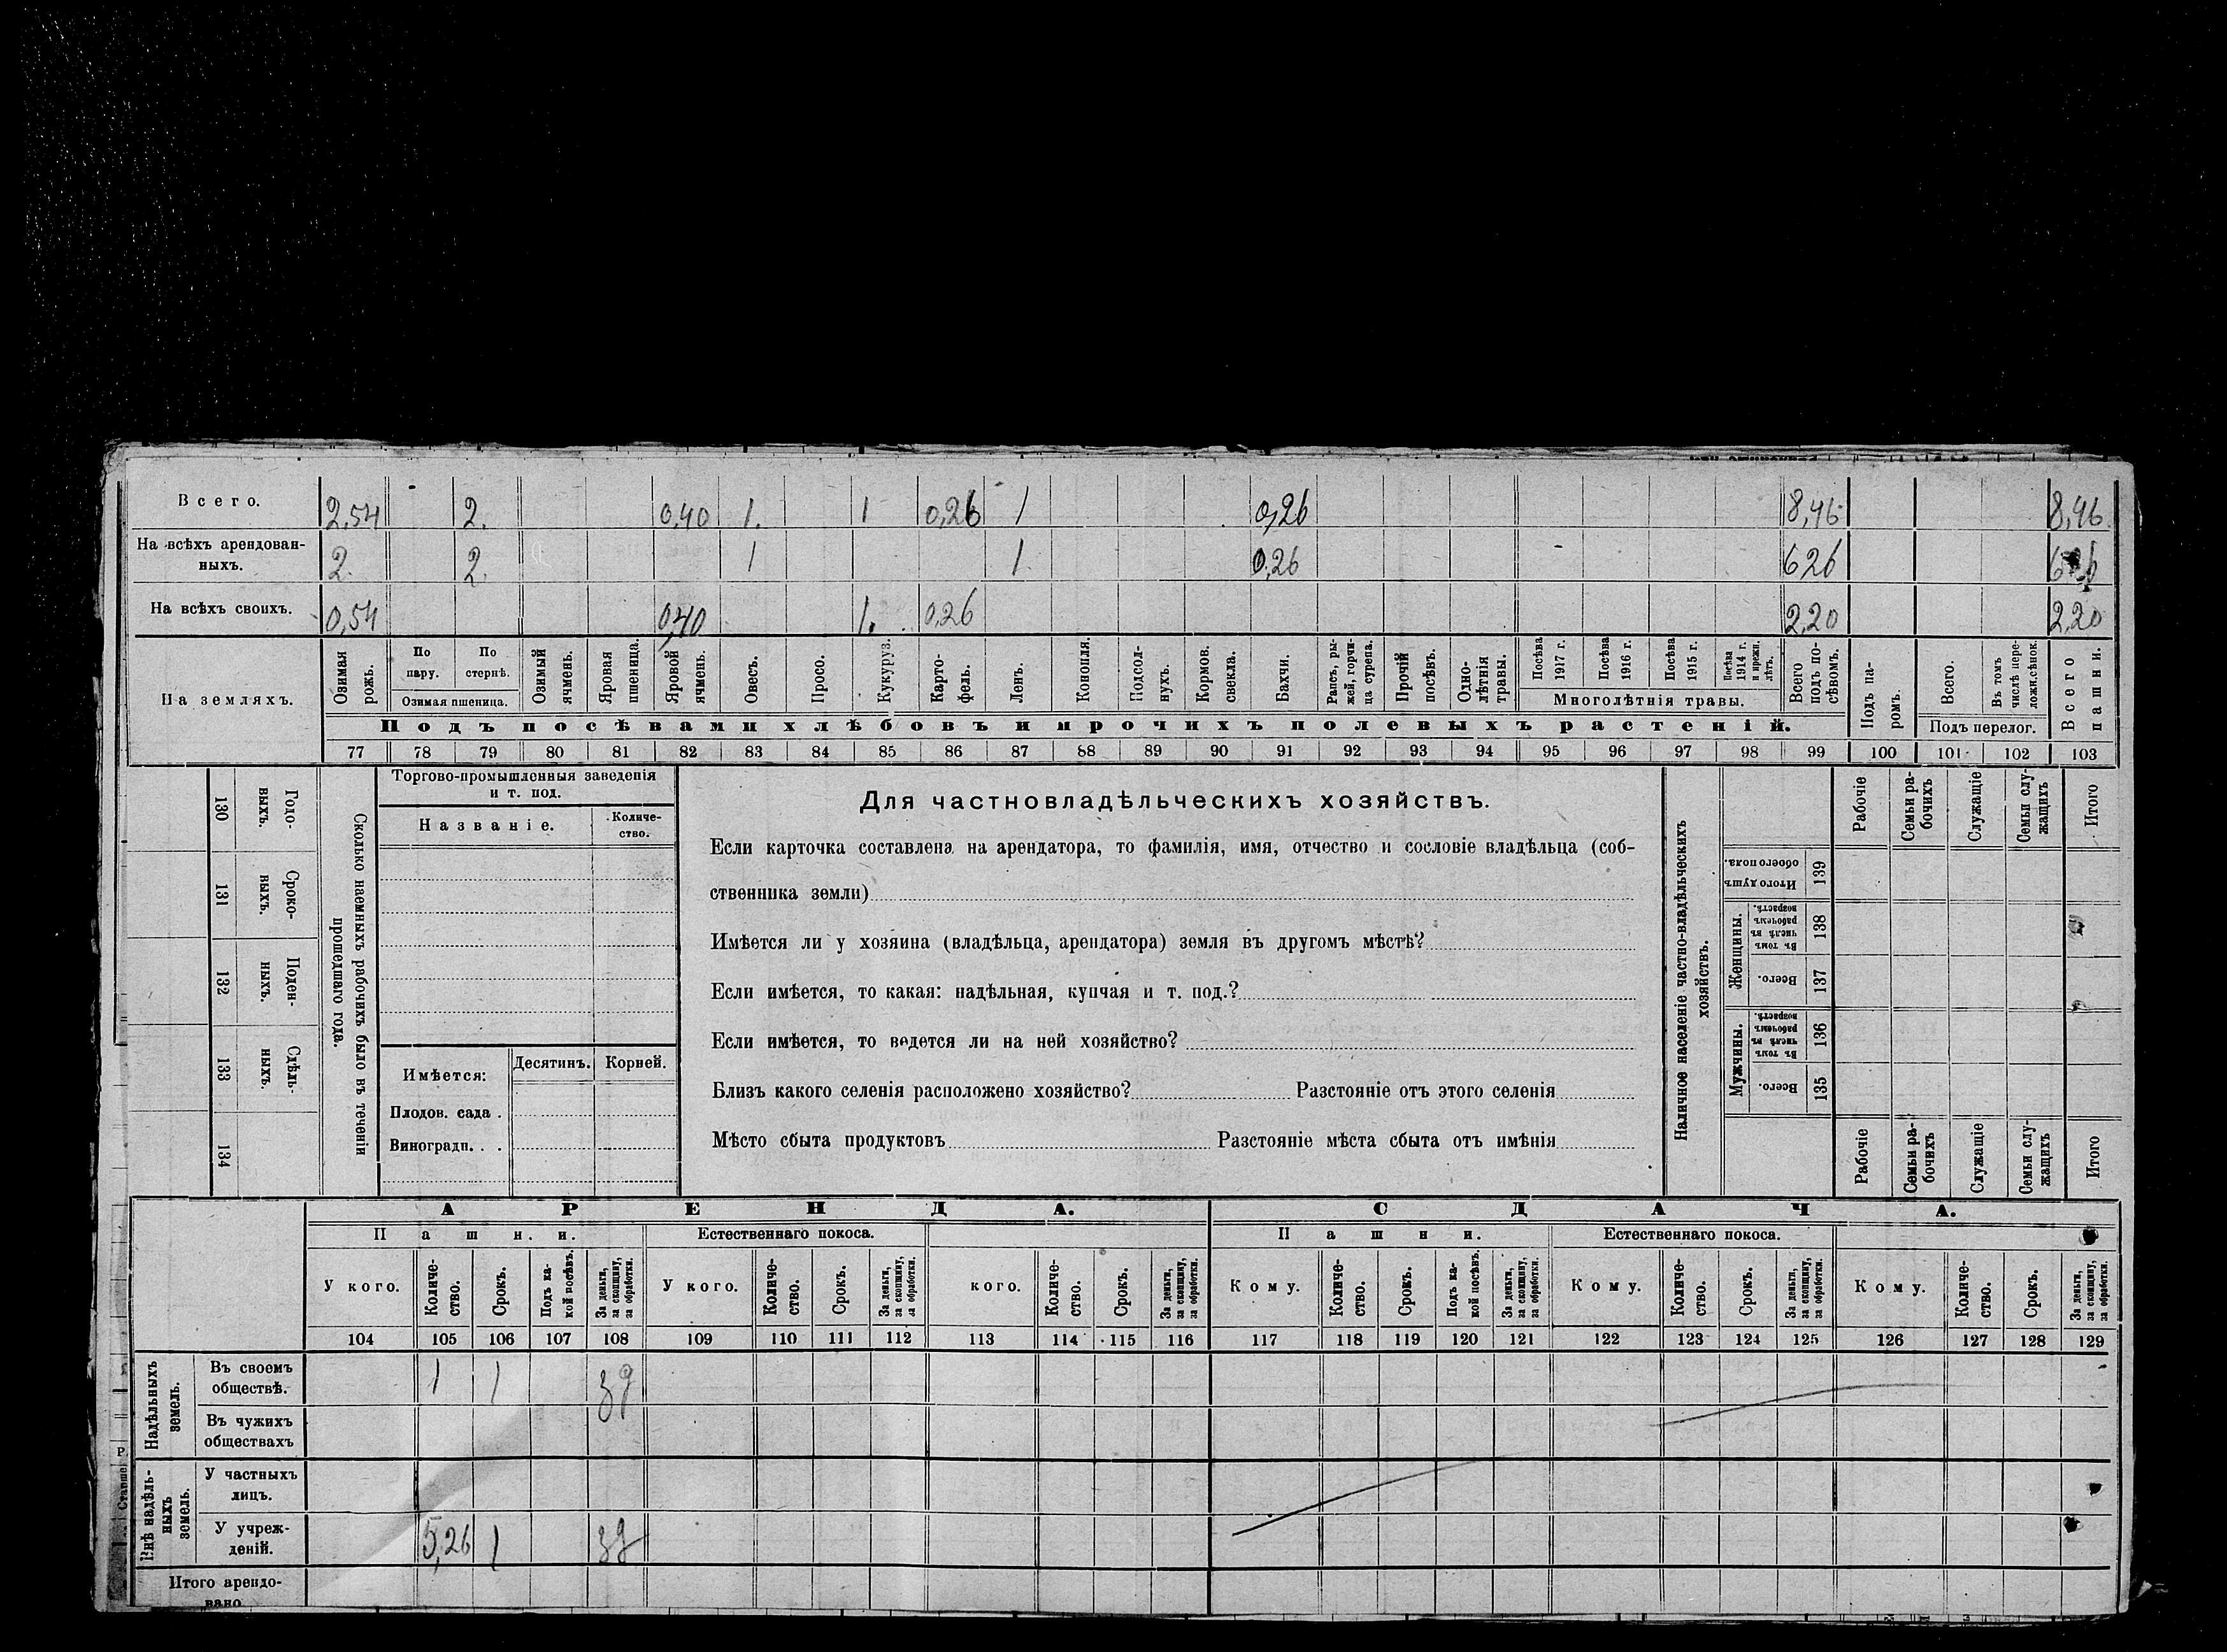 Всего. 2,54 2. 0,40 1. 1 0,26 1 0,26 8,46 8,46
На всѣхъ арендован-
ныхъ. 2. 2. 1 1. 0,26 626
На всѣхъ своихъ. 0,54 0,40 1. 0,26 2,20 2,20
На земляхъ.
Озимая
рожь.
По
пару.
По
стернѣ.
Озимая пшеница.
Озимый
ячмень.
Яровая
пшеница.
Яровой
ячмень.
Овесъ.
Просо.
Кукуруз.
Карто-
фель.
Ленъ.
Конопля.
Подсол-
нухъ.
Кормов.
свекла.
Бахчи.
Рапсъ, ры-
жей, горчи-
ца сурепа.
Прочій
посѣвъ.
Одно-
лѣтнія
травы.
Посѣва
1917 г.
Посѣва
1916 г.
Посѣва
1915 г.
Посѣва
1914 г.
и прежн.
лѣтъ.
Многолѣтнія травы.
Всего
подъ по-
сѣвомъ.
Подъ па-
ромъ.
Всего.
Въ томъ
числѣ пере-
ложн.сѣнок.
Подъ перелог.
Всего
пашни.
Подъ посѣвами хлѣбовъ и прочихъ полевыхъ растеній.
77 78 79 80 81 82 83 84 85 86 87 88 89 90 91 92 93 94 95 96 97 98 99 100 101 102 103
130
Годо-
выхъ.
131
Сроко-
выхъ.
132
Поден-
ныхъ.
133
Сдѣль-
ныхъ.
134
Сколько наемныхъ рабочихъ было въ теченіи
прошедшаго года.
Торгово-промышленныя заведенія
и т. под.
Названіе.
Количе-
ство.
Имѣется:
Десятинъ. Корней.
Плодов. сада .
Виноградн. . .
Для частновладѣльческихъ хозяйствъ.
Если карточка составлена на арендатора, то фамилія, имя, отчество и сословіе владѣльца (соб-
ственника земли)
Имѣется ли у хозяина (владѣльца, арендатора) земля въ другомъ мѣстѣ?
Если имѣется, то какая: надѣльная, купчая и т. под.?
Если имѣется, то ведется ли на ней хозяйство?
Близъ какого селенія расположено хозяйство? Разстояніе отъ этого селенія
Мѣсто сбыта продуктовъ Разстояніе мѣста сбыта отъ имѣнія
Наличное населеніе частно-владѣльческихъ
хозяйствъ.
Рабочіе
Семьи ра-
бочихъ
Служащіе
Семьи слу-
жащихъ
Итого
Итого душъ
обоего пола.
139
Женщины.
Въ томъ
числѣ въ
рабочемъ
возрастѣ.
138
Всего.
137
Мужчины.
Въ томъ
числѣ въ
рабочемъ
возрастѣ.
136
Всего.
135
Рабочіе
Семьи ра-
бочихъ
Служащіе
Семьи слу-
жащихъ
Итого
АРЕНДА. СДАЧА.
Пашни. Естественнаго покоса. Пашни. Естественнаго покоса.
У кого.
Количе-
ство.
Срокъ.
Подъ ка-
кой посѣвъ.
За деньги,
за скопщину,
за обработки.
У кого.
Количе-
ство.
Срокъ.
За деньги,
за скопщину,
за обработки.
кого.
Количе-
ство.
Срокъ.
За деньги,
за скопщину,
за обработки.
Кому.
Количе-
ство.
Срокъ.
Подъ ка-
кой посѣвъ.
За деньги,
за скопщину,
за обработки.
Кому.
Количе-
ство.
Срокъ.
За деньги,
за скопщину,
за обработки.
Кому.
Количе-
ство.
Срокъ.
За деньги,
за скопщину,
за обработки.
104 105 106 107 108 109 110 111 112 113 114 115 116 117 118 119 120 121 122 123 124 125 126 127 128 129
Надѣльныхъ
земель.
Въ своемъ
обществѣ. 1 1 зд
Въ чужихъ
обществахъ
Внѣ надѣль-
ныхъ
земель.
У частныхъ
лицъ.
У учреж-
деній. 5,26 1 зд
Итого арендо-
вано